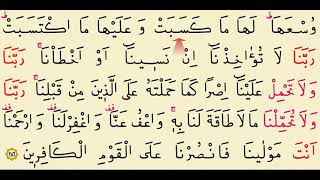 وُسْعَهَاۜ لَهَا مَا كَسَبَتْ وَ عَلَيْهَا مَا اكْتَسَبَتْۜ
رَبَّنَا لَا تُؤَاخِذْنَا اِنْ نَسِينَا اَوْ اَخْطَاْنَاۚ رَبَّنَا
وَلَا تَحْمِلْ عَلَيْنَا اِصْرًا كَمَا حَمَلْتَهُ عَلَى الَّذِينَ مِنْ قَبْلِنَاۚ رَبَّنَا
وَلَا تُحَمِّلْنَا مَا لَا طَاقَةَ لَنَا بِهِۚ وَاعْفُ عَنَّا۠ وَاغْفِرْلَنَا۠ وَارْحَمْنَا۠
اَنْتَ مَوْلٰينَا فَانْصُرْنَا عَلَى الْقَوْمِ الْكَافِرِينَ